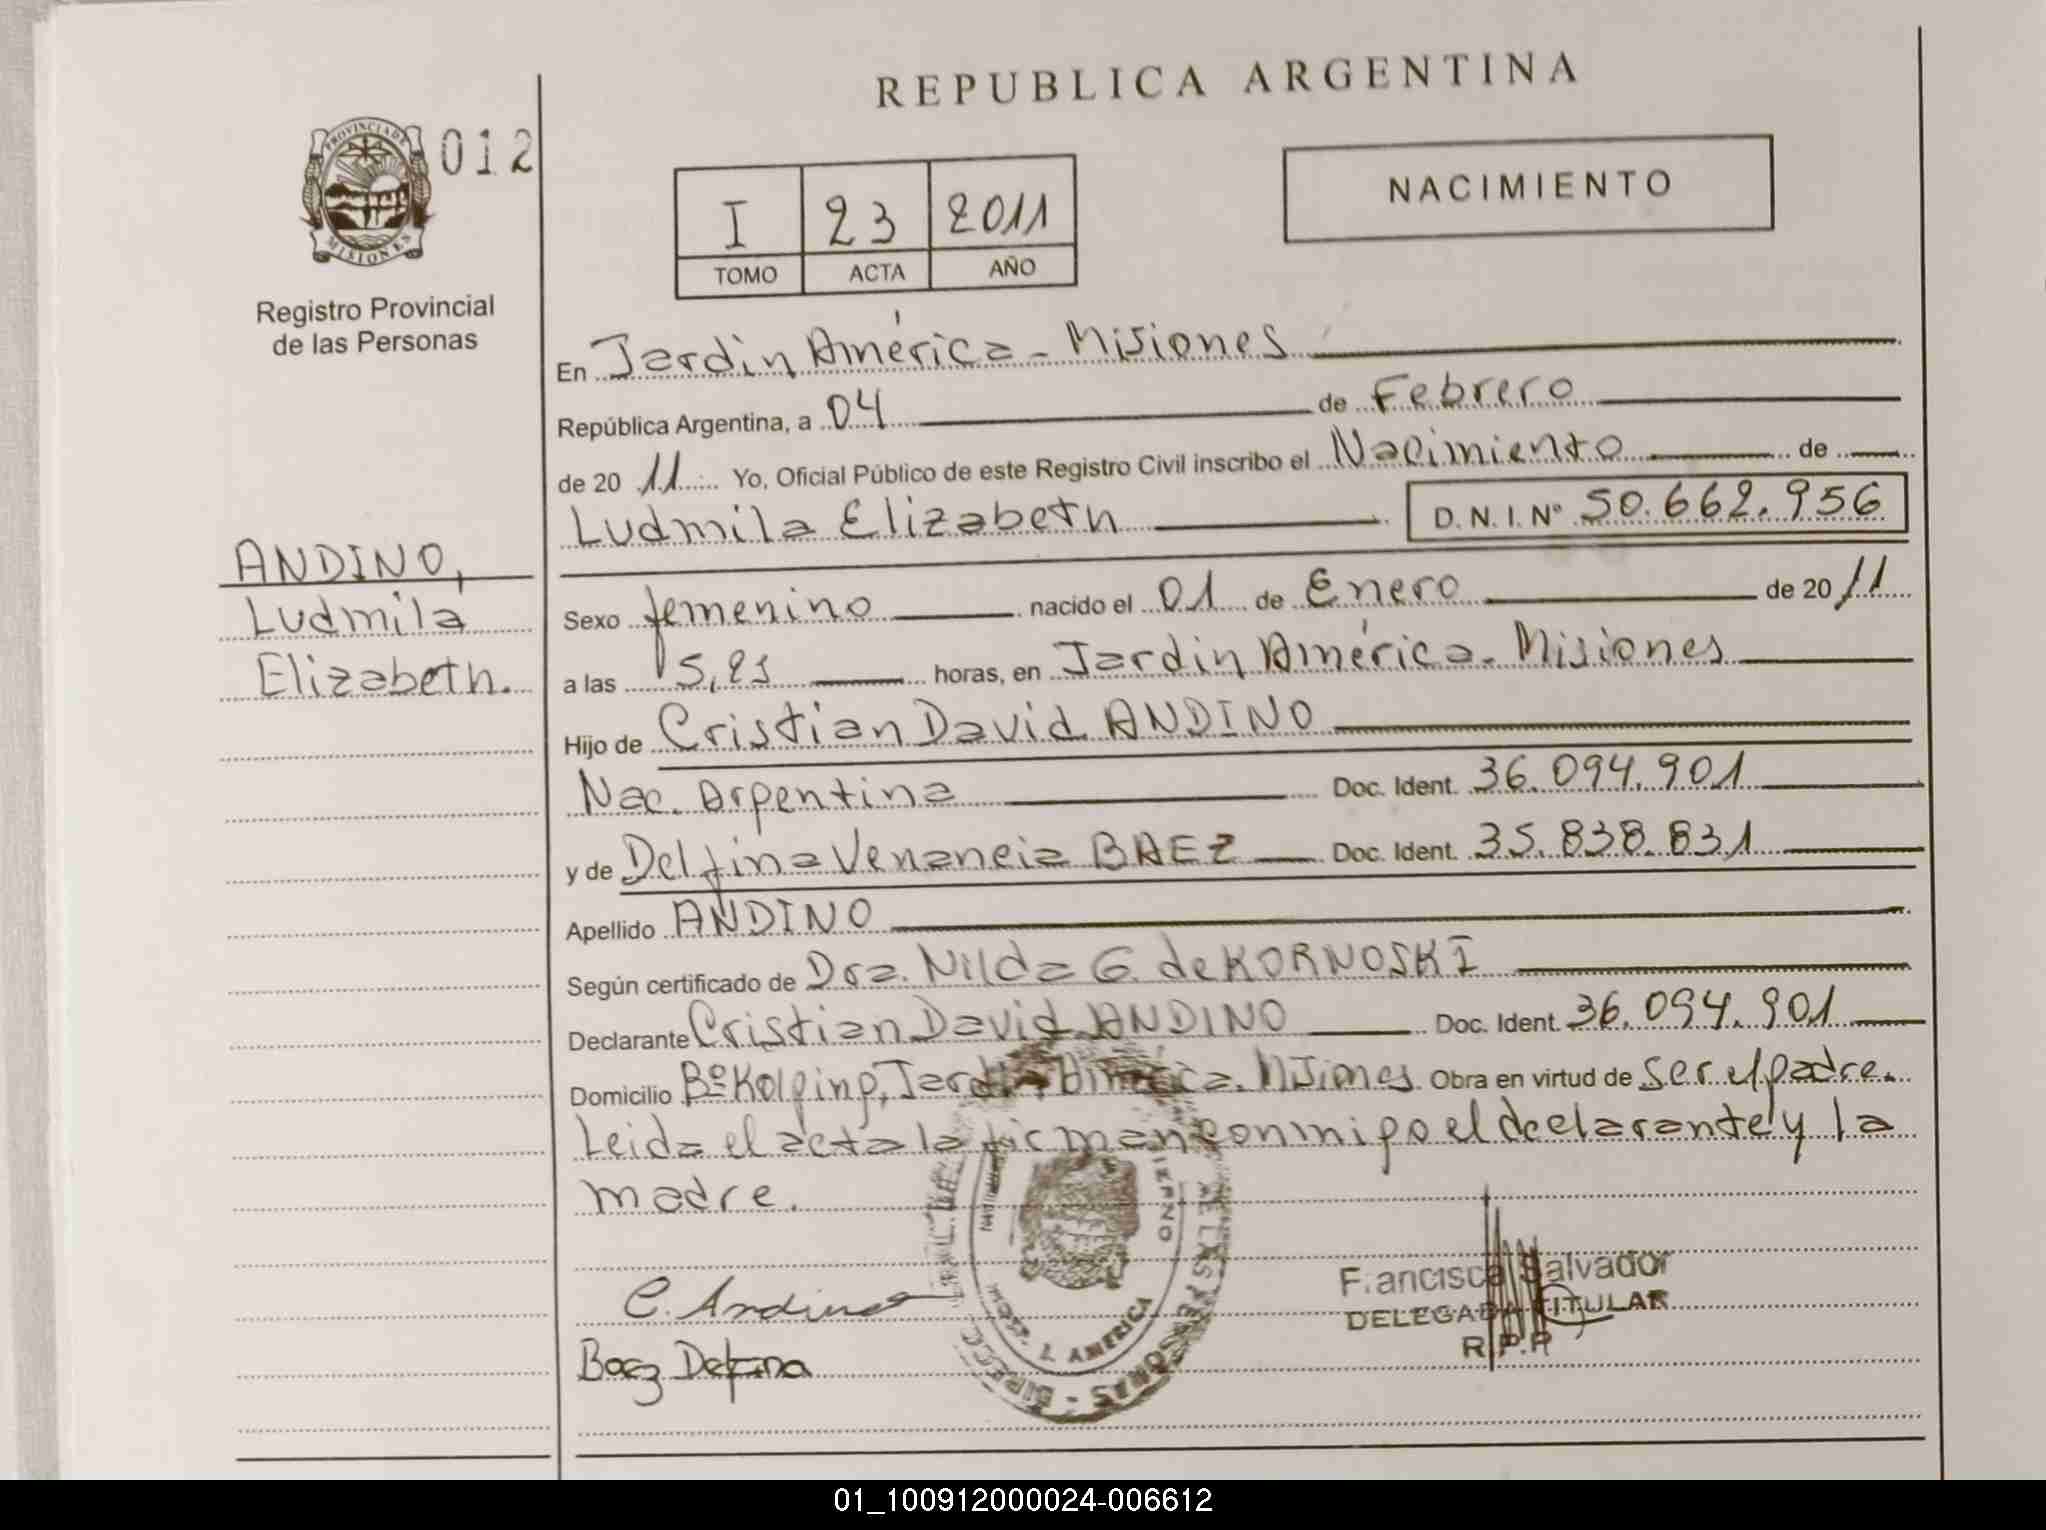 REPUBLICA ARGENTINA
PROVINCIA DE
MISIONES
012
Registro Provincial
de las Personas
I 23 2011
TOMO ACTA AÑO
NACIMIENTO
ANDINO,
Ludmila
Elizabeth.
En Jardin América - Misiones
República Argentina, a 04 de Febrero
de 2011 Yo, Oficial Público de este Registro Civil inscribo el Nacimiento de
Ludmila Elizabeth D. N. I. Nº 50.662.956
Sexo femenino nacido el 01 de Enero de 2011
a las horas, en Jardin América - Misiones
Hijo de Cristian David ANDINO
Nac. Argentina Doc. Ident. 36.094.901
y de Delfina Venancia BAEZ Doc. Ident. 35.838.831
Apellido ANDINO
Según certificado de Dra. Nilda G. de KORNOSKI
Declarante Cristian David ANDINO Doc. Ident. 36.094.901
Domicilio Bº Kolping, Jardin América. Misiones Obra en virtud de ser el padre.
Leida el acta la firman conmigo el declarante y la
madre.
C. Andino
Baez Delfina
Francisca Salvador
DELEGADA TITULAR
R.P.P
AMERICA
01_100912000024-006612